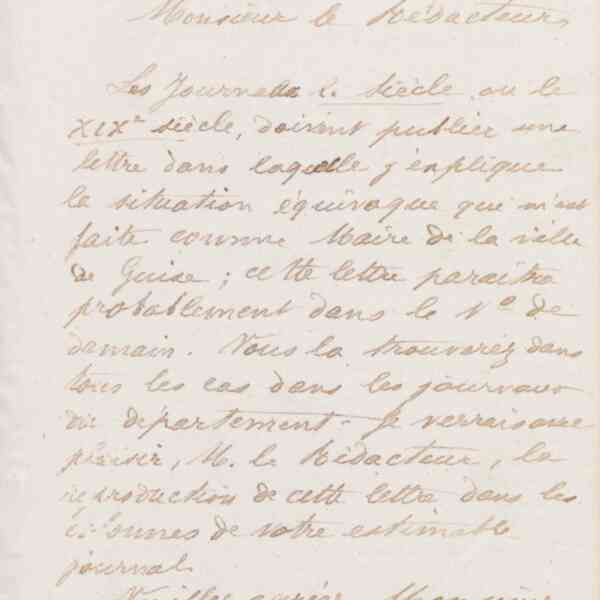 Monsieur le Rédacteur,
Les Journaux le Siècle ou le
XIXe siècle, doivent publier une
lettre dans laquelle j'explique
la situation équivoque qui m'est
faite comme Maire de la ville
de Guise ; cette lettre paraîtra
probablement dans le No de
demain. Vous la trouverez dans
tous les cas dans les journaux
du département. Je verrais avec
plaisir, M. le Rédacteur, la
reproduction de cette lettre dans les
colonnes de votre estimable
journal.
Veuillez agréer, Monsieur